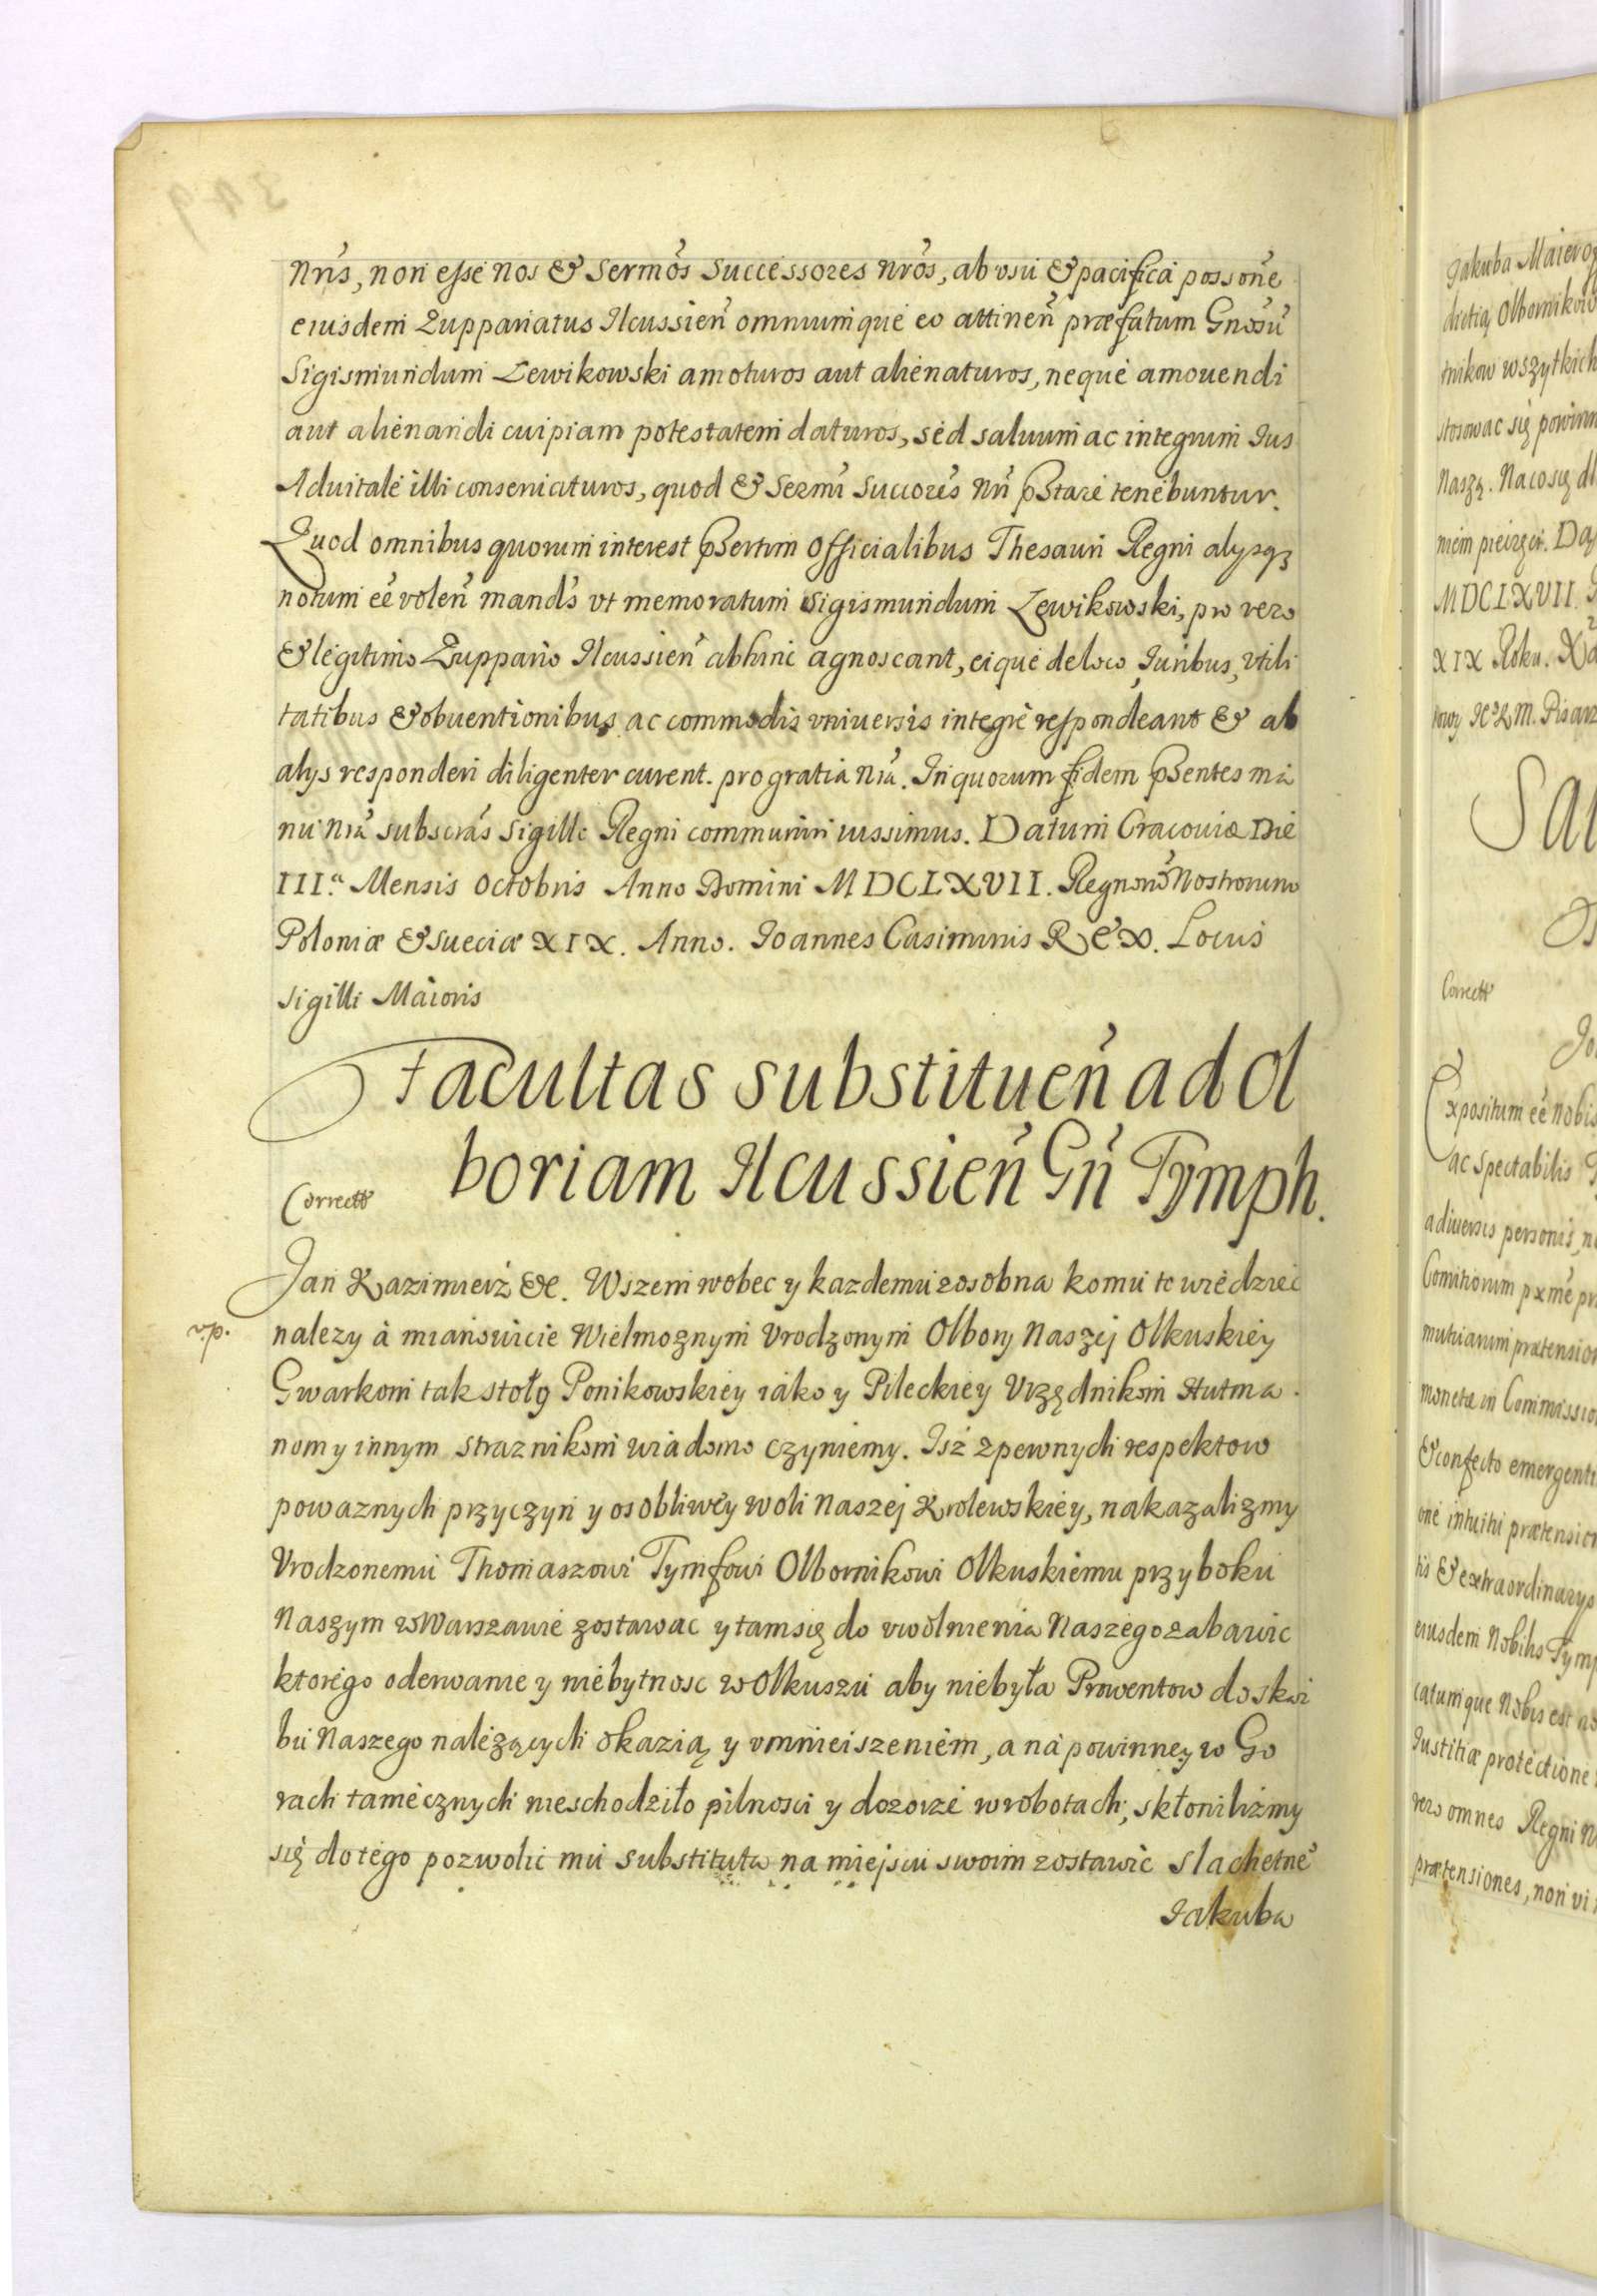 nrıs, non esse nos & Sermos Successores nros, ab vsu & pacifica possone
eiusdem Zuppariatus Ilcussien omniumque eo attinen præfatum Gnosu
Sigismundum Lewikowski amoturos aut alienaturos, neque amouendi
aut alienandi cuipiam potestatem daturos, sed saluum ac integrum Ius
Aduitale illi conseruaturos, quod & Sermi Succores nri pstare tenebuntur.
Quod omnibus quorum interest psertim Officialibus Thesauri Regni alysqз
notum eẽ volen mands vt memoratum Sigismundum Lewikowski, pro vero
& legitimo Zuppario Ilcussien abhinc agnoscant, eique de loco, Iuribus, vtili
tatibus & obuentionibus ac commodis vniuersis integre respondeant & ab
alys responderi diligenter curent. pro gratia nra. In quorum fidem psentes ma
nu nra subscras Sigillo Regni communiri iussimus. Datum Cracouiæ Die
IIIa. Mensis Octobris Anno Domini MDCLXVII. Regnorũ Nostrorum
Poloniæ & Sueciæ XIX. Anno. Ioannes Casimirus Rex. Locus
Sigilli Maioris
Facultas substituen̄ ad Ol
boriam Ilcussien̄ Gn̄ Tymph.
Correctt
Jan Kazimierz &c. Wszem wobec y kazdemu zosobna komu to wiedziec
v.p.
nalezy à mianowicie Wielmoznym Vrodzonym Olbory Naszej Olkuskiey
Gwarkom tak stoły Ponikowskiey iako y Pileckiey Vrzędnikom Hutma
nom y innym straznikom wiadomo czyniemy. Isz zpewnych respektow
powaznych przyczyn y osobliwey woli Naszej Krolewskiey, nakazalizmy
Vrodzonemu Thomaszowi Tymfowi Olbornikowi Olkuskiemu przy boku
Naszym w Warszawie zostawac y tam się do vwolnienia Naszego zabawic
ktorego oderwanie y niebytnosc w Olkuszu aby niebyła Prowentow do skar
bu Naszego nalezących okazią y vmnieiszeniem, a na powinney w Go
rach tamecznych nieschodziło pilnosci y dozorze w robotach, skłonilizmy
się do tego pozwolic mu substituta na miejscu swoim zostawic slachetne
Iakuba
Jakuba
tnikow wszytkich
stosowac się powinn
Naszą. Na co się dl
MDCLXVII.
XIX Roku.
Correctt
Expositum eẽ nobis
ac Spectabilis
a diuersis personis,
mutuarum prætension
monetæ in Commissio
& confecto emergenti
one intuitu prætension
tis & extraordinarys
eiusdem Nobilis Tymp
catumque Nobis est
Iustitiæ protectione
vero omnes Regni
prætensiones, non vi